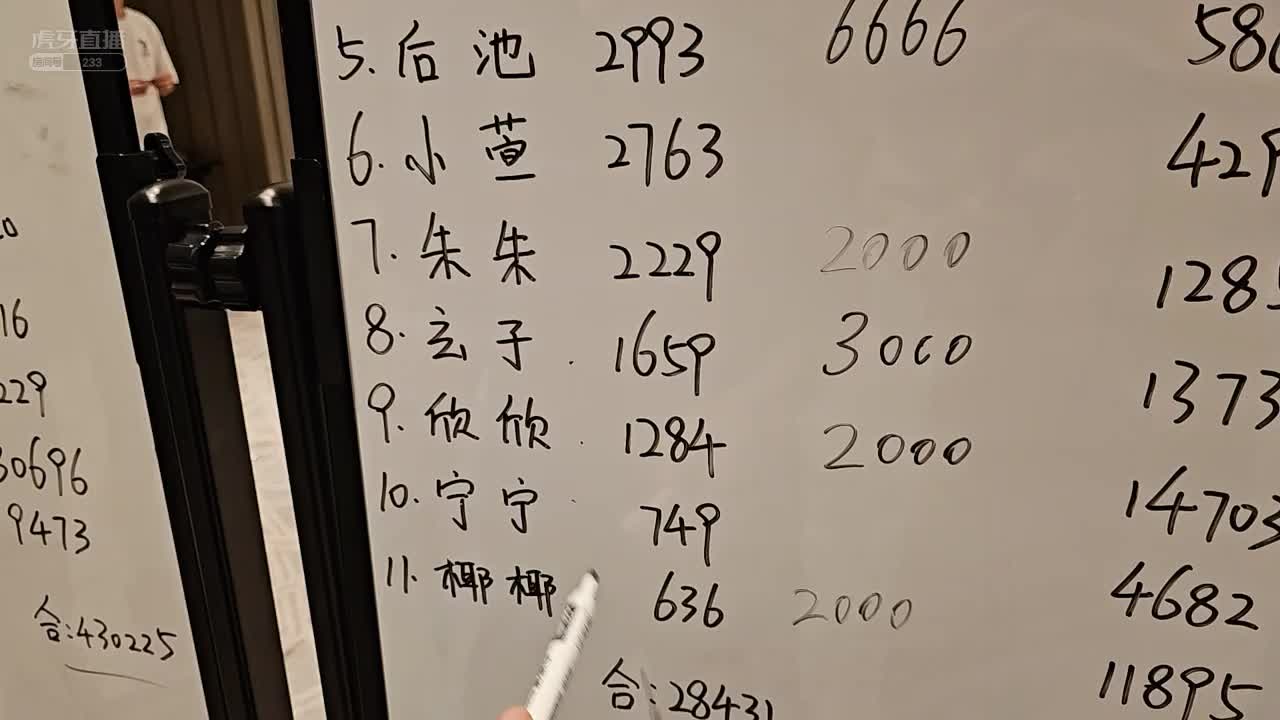 虎牙直播
房间号 233
5. 后池 2993 6666
6. 小萱 2763
7. 朱朱 2229 2000
8. 玄子. 1659 3000
9. 欣欣. 1284 2000
10. 宁宁. 749
11. 椰椰 636 2000
合:28431
4682
11895
9473
合:430225